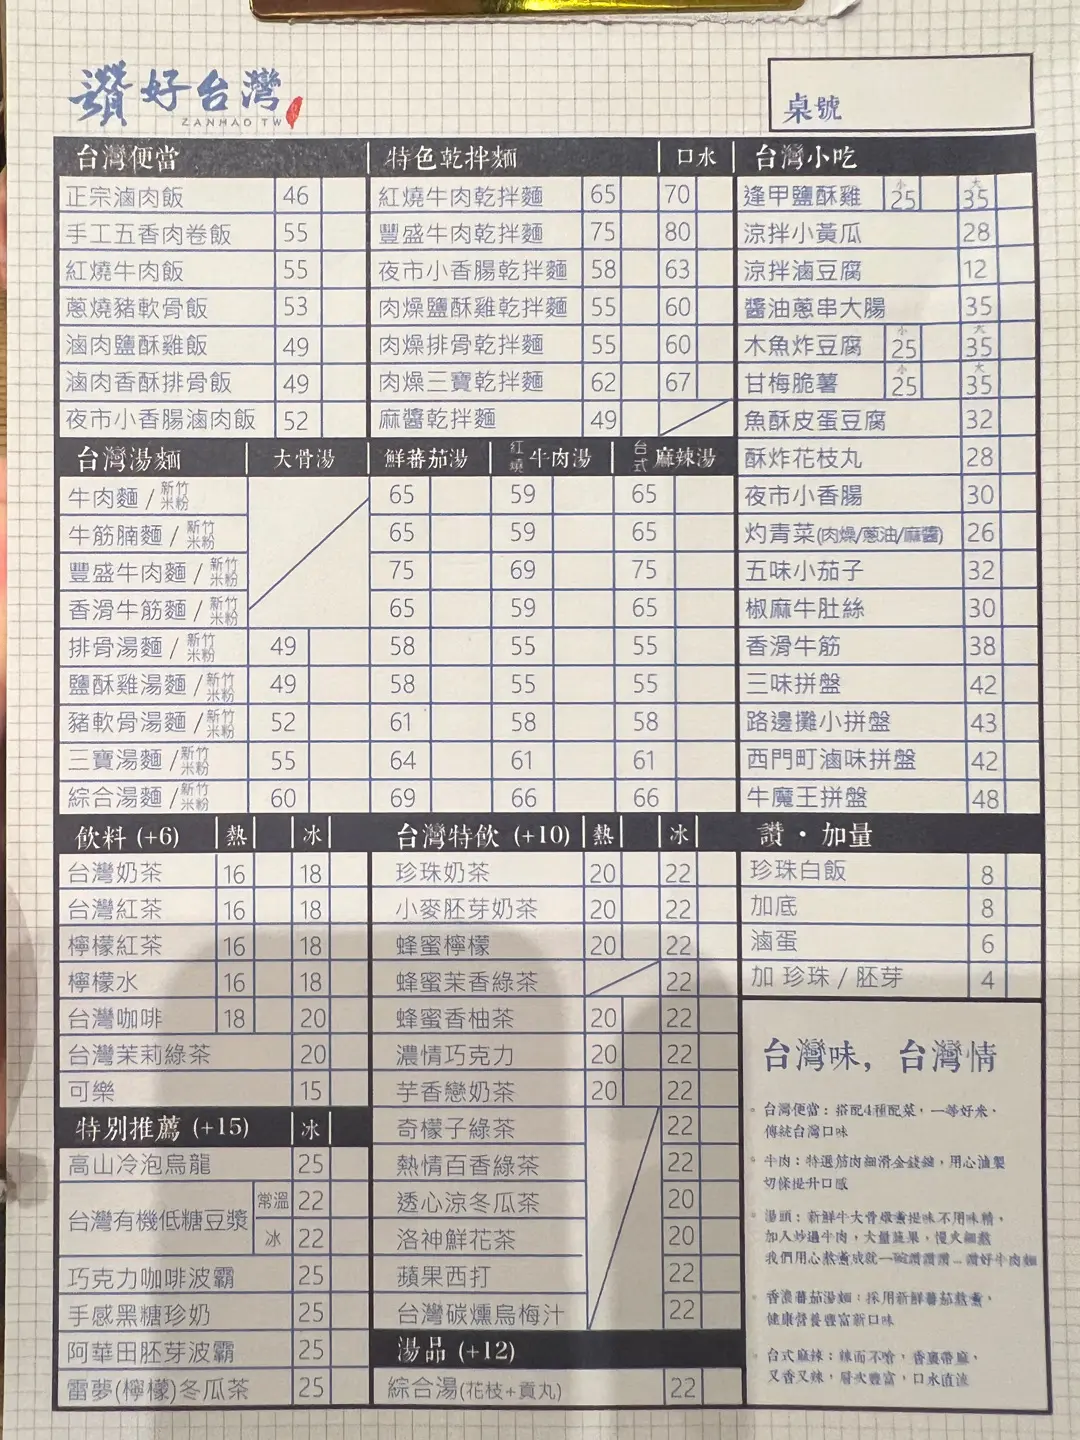 讚好台灣
ZANHAO TW
桌號
台灣便當
正宗滷肉飯 46
手工五香肉卷飯 55
紅燒牛肉飯 55
蔥燒豬軟骨飯 53
滷肉鹽酥雞飯 49
滷肉香酥排骨飯 49
夜市小香腸滷肉飯 52
特色乾拌麵 口水
紅燒牛肉乾拌麵 65 70
豐盛牛肉乾拌麵 75 80
夜市小香腸乾拌麵 58 63
肉燥鹽酥雞乾拌麵 55 60
肉燥排骨乾拌麵 55 60
肉燥三寶乾拌麵 62 67
麻醬乾拌麵 49
台灣小吃
逢甲鹽酥雞 小25 大35
涼拌小黃瓜 28
涼拌滷豆腐 12
醬油蔥串大腸 35
木魚炸豆腐 小25 大35
甘梅脆薯 小25 大35
魚酥皮蛋豆腐 32
酥炸花枝丸 28
夜市小香腸 30
灼青菜(肉燥/蔥油/麻醬) 26
五味小茄子 32
椒麻牛肚絲 30
香滑牛筋 38
三味拼盤 42
路邊攤小拼盤 43
西門町滷味拼盤 42
牛魔王拼盤 48
台灣湯麵 大骨湯 鮮蕃茄湯 紅燒牛肉湯 台式麻辣湯
牛肉麵 / 新竹米粉 65 59 65
牛筋腩麵 / 新竹米粉 65 59 65
豐盛牛肉麵 / 新竹米粉 75 69 75
香滑牛筋麵 / 新竹米粉 65 59 65
排骨湯麵 / 新竹米粉 49 58 55 55
鹽酥雞湯麵 / 新竹米粉 49 58 55 55
豬軟骨湯麵 / 新竹米粉 52 61 58 58
三寶湯麵 / 新竹米粉 55 64 61 61
綜合湯麵 / 新竹米粉 60 69 66 66
飲料 (+6) 熱 冰
台灣奶茶 16 18
台灣紅茶 16 18
檸檬紅茶 16 18
檸檬水 16 18
台灣咖啡 18 20
台灣茉莉綠茶 20
可樂 15
特別推薦 (+15) 冰
高山冷泡烏龍 25
台灣有機低糖豆漿 常溫 22
冰 22
巧克力咖啡波霸 25
手感黑糖珍奶 25
阿華田胚芽波霸 25
雷夢(檸檬)冬瓜茶 25
台灣特飲 (+10) 熱 冰
珍珠奶茶 20 22
小麥胚芽奶茶 20 22
蜂蜜檸檬 20 22
蜂蜜茉香綠茶 22
蜂蜜香柚茶 20 22
濃情巧克力 20 22
芋香戀奶茶 20 22
奇檬子綠茶 22
熱情百香綠茶 22
透心涼冬瓜茶 20
洛神鮮花茶 20
蘋果西打 22
台灣碳燻烏梅汁 22
湯品 (+12)
綜合湯(花枝+貢丸) 22
讚・加量
珍珠白飯 8
加底 8
滷蛋 6
加 珍珠 / 胚芽 4
台灣味，台灣情
台灣便當：搭配4種配菜，一等好米，
傳統台灣口味
牛肉：特選筋肉細滑金錢𦟌，用心滷製
切條提升口感
湯頭：新鮮牛大骨燉熬提味不用味精，
加入炒過牛肉，大量蔬果，慢火細熬
我們用心熬熬成就一碗讚讚讚...讚好牛肉麵
香濃蕃茄湯麵：採用新鮮蕃茄熬煮，
健康營養豐富新口味
台式麻辣：辣而不嗆，香裏帶麻，
又香又辣，層次豐富，口水直流